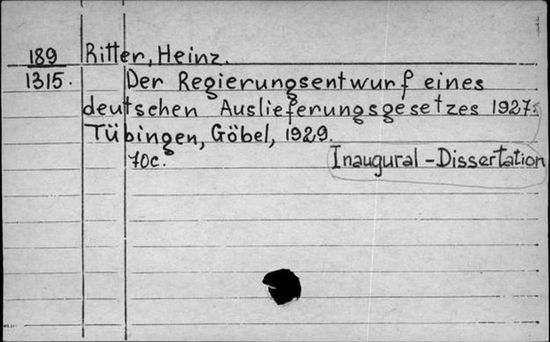 189 Ritter, Heinz.
1315. Der Regierungsentwurf eines
deutschen Auslieferungsgesetzes 1927.
Tübingen, Göbel, 1929.
70c. Inaugural-Dissertation